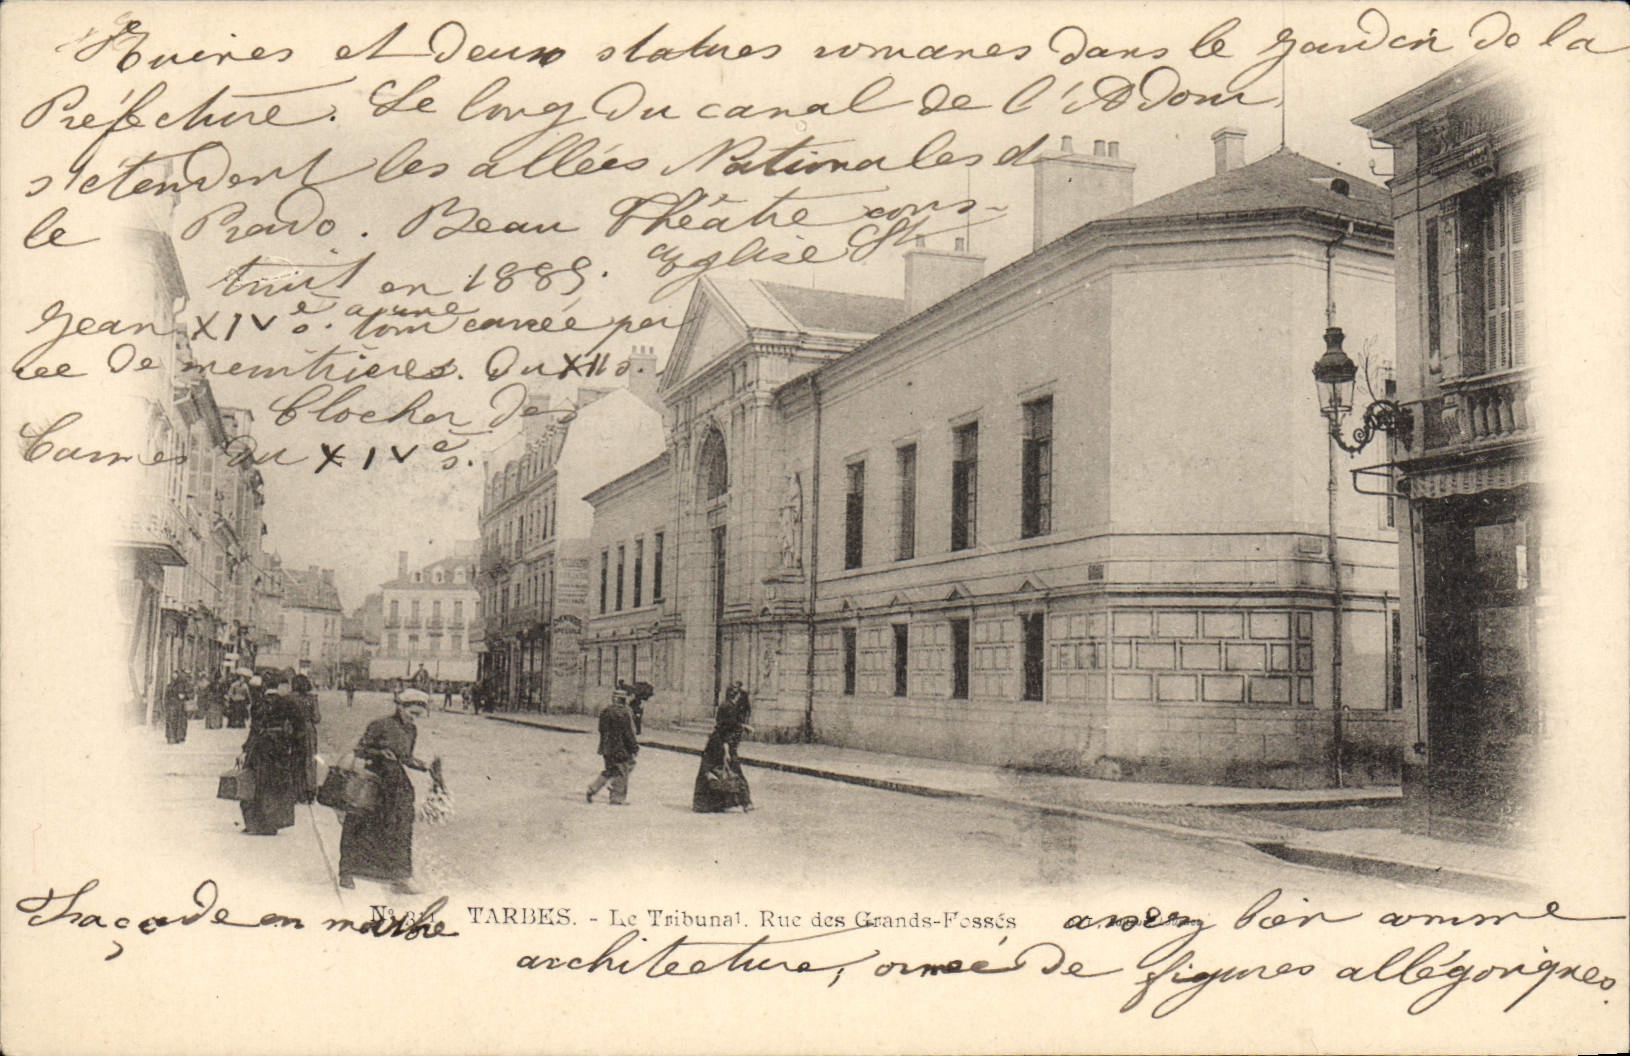 et deux statues romanes dans le Jardin de la
Préfecture. Le long du canal de l'Adour
s'étendent les allées Nationales et
le Prado. Beau Théâtre cons-
truit en 1885. Eglise St
Jean XIVe s. a une tour carrée per
cee de meurtrières. du XII s.
Clocher des
Carmes du XIVe s.
Façade en marbre
No TARBES. - Le Tribunal. Rue des Grands-Fossés
assez bien comme
architecture, ornée de figures allégoriques.